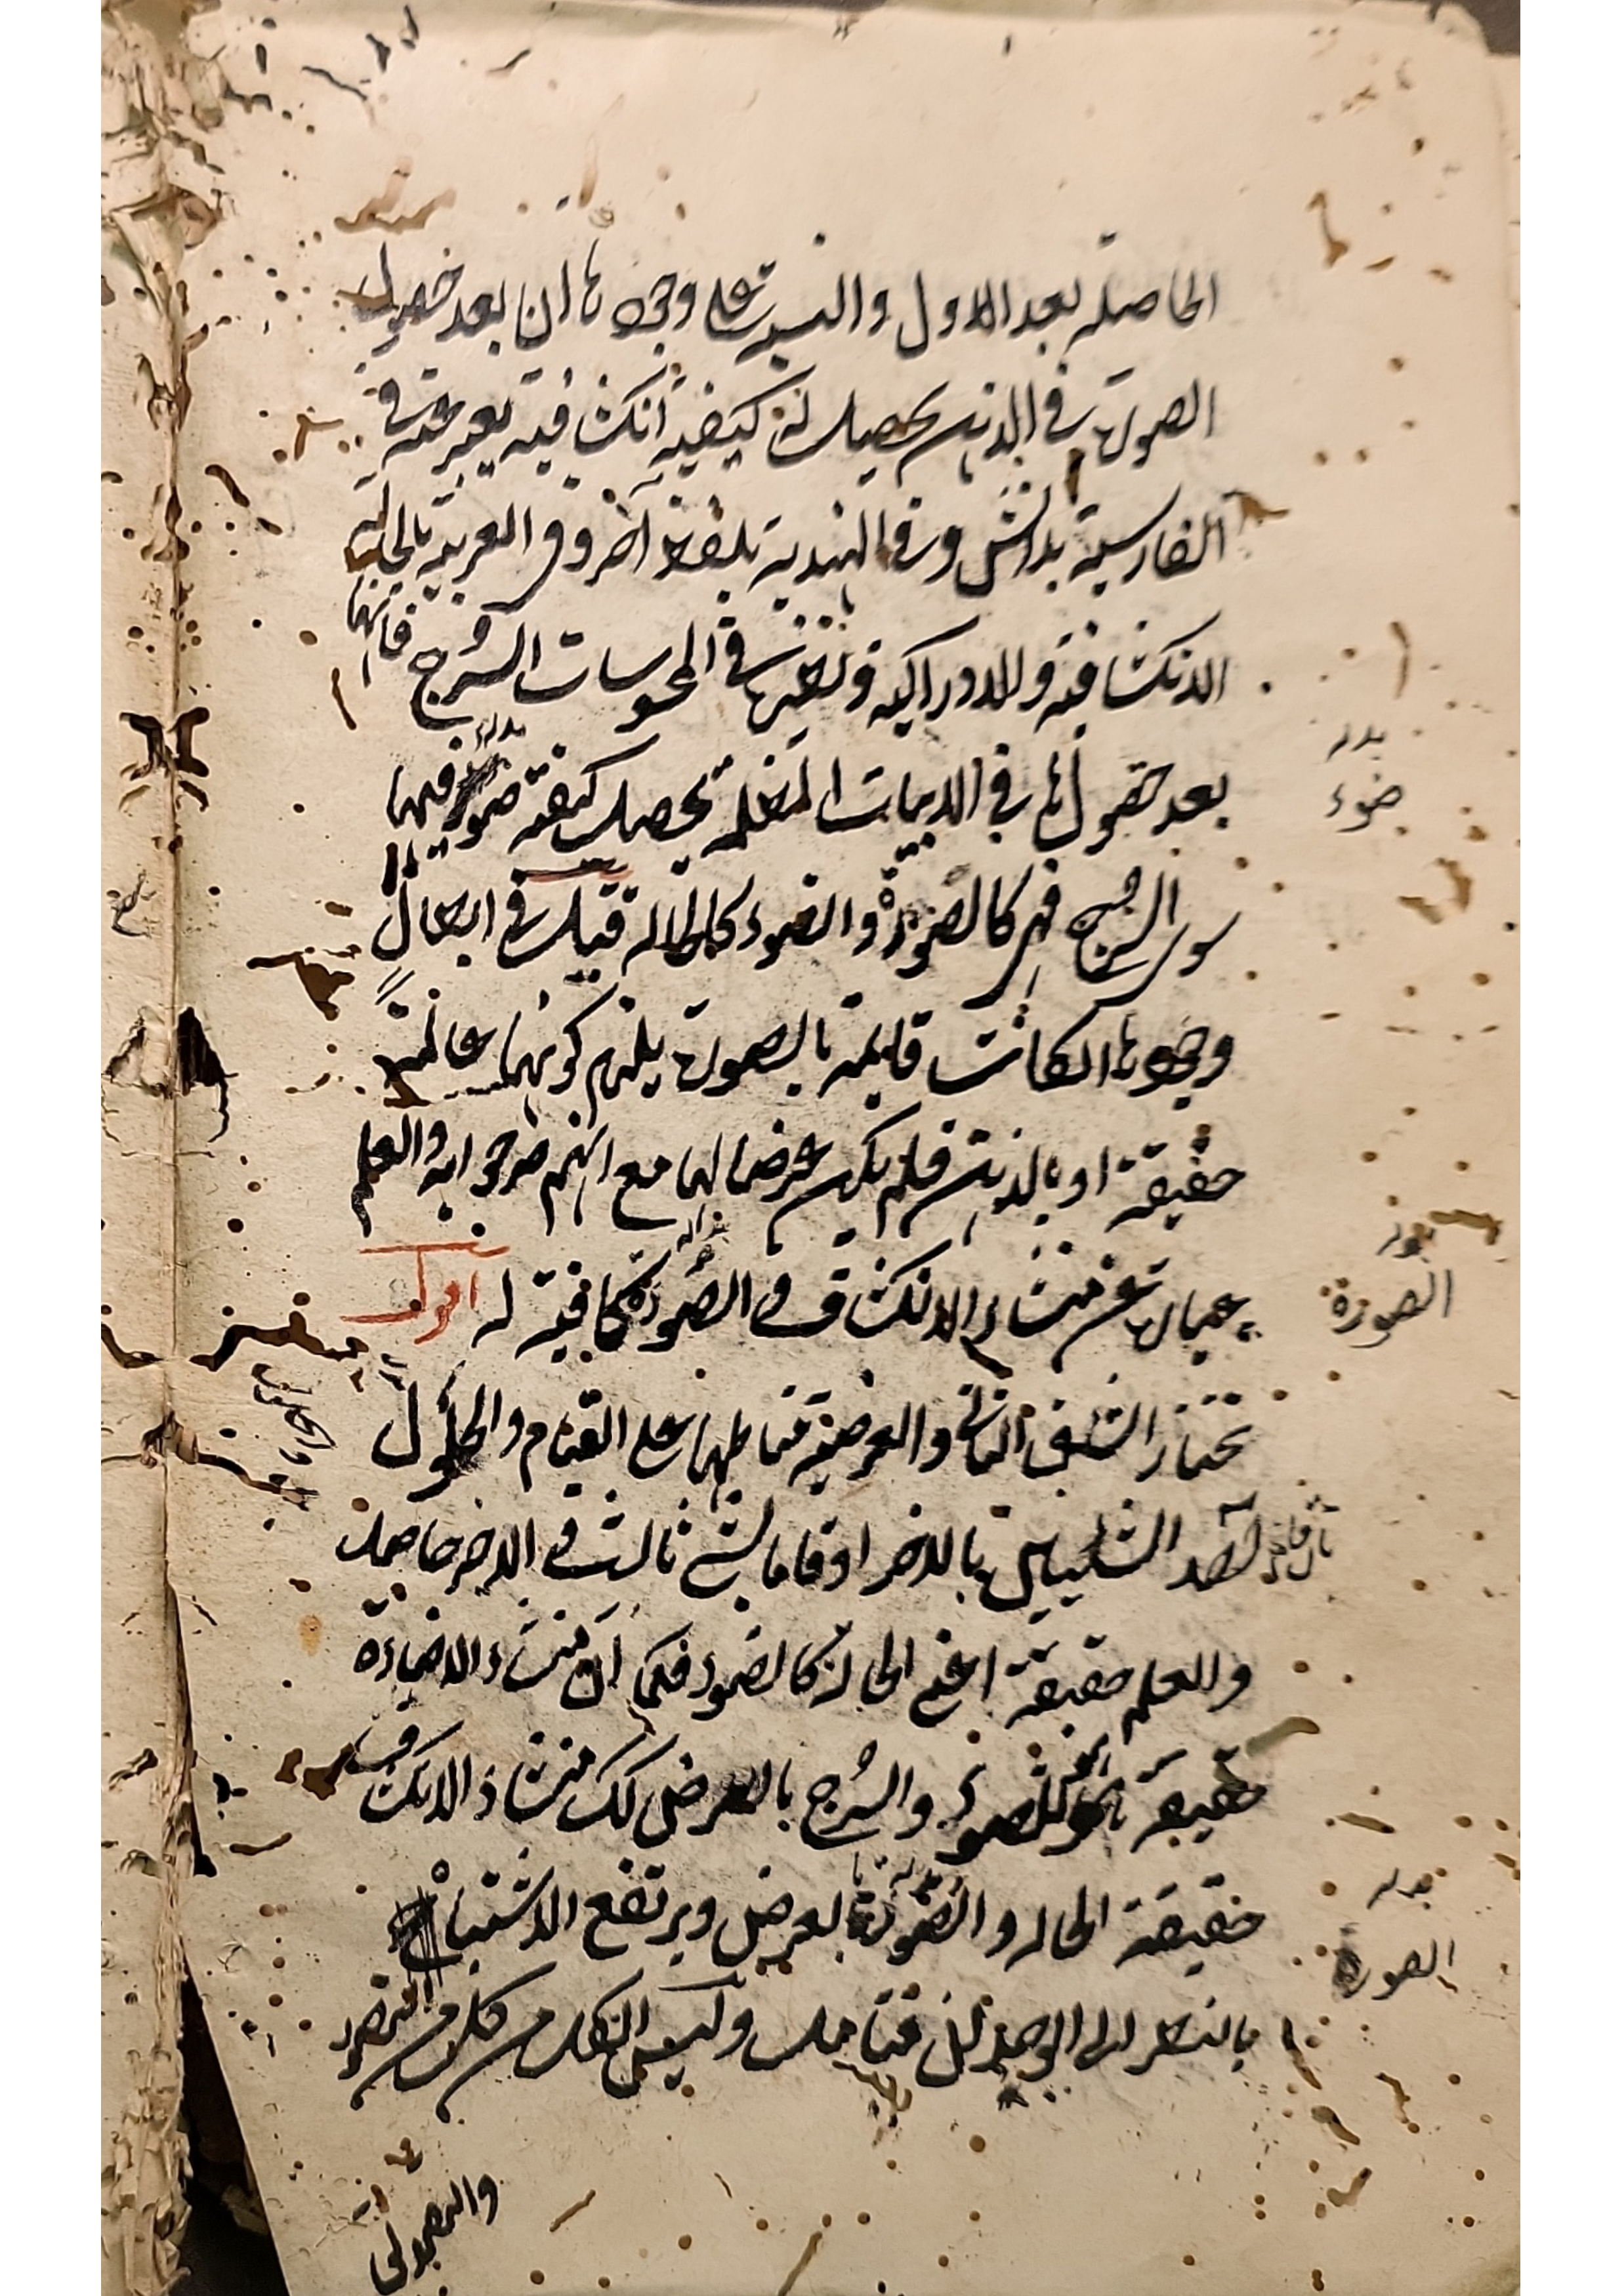 الحاصلة بعد الاول والنسبة على وجودها ان بعد حصول
الصورة في الذهن يحصل له كيفية انكشافية يعبر عنه في
الفارسية بدانش وفي الهندية بلفظ آخر وفي العربية بالحالة
الانكشافية والادراكية ونظيرها في المحسوسات السرج فانها
بعد حصولها في الابيات المظلمة يحصل كيفية ضوء فيها
سوى السرج فهي كالصورة والضوء كالحالة قيل في ابطال
وجودها ان كانت قايمة بالصورة يلزم كونها عالمة
حقيقة او بالذهن فلم يكن عرضا لها مع انهم صرحوا به والعلم
عبارة عن منشاء الانكشاف والصورة كافية له اقول
نختار الشق الثاني والعرضية مناطها على القيام والحلول
لاحد الشيئين بالاخر او قاما بشئ ثالث والاخر حاصل
والعلم حقيقة اعني الحالة كالضوء فكما ان منشاء الاضاءة
حقيقة الضوء والسرج بالعرض كك منشاء الانكشاف
حقيقة الحالة والصورة بالعرض ويرتفع الاشتباه
بالنظر الى الوجدان فتامل وليس الكل من كل من التصور
بدله
ضوء
بدله
الصورة
بدله
الصورة
والتصديق